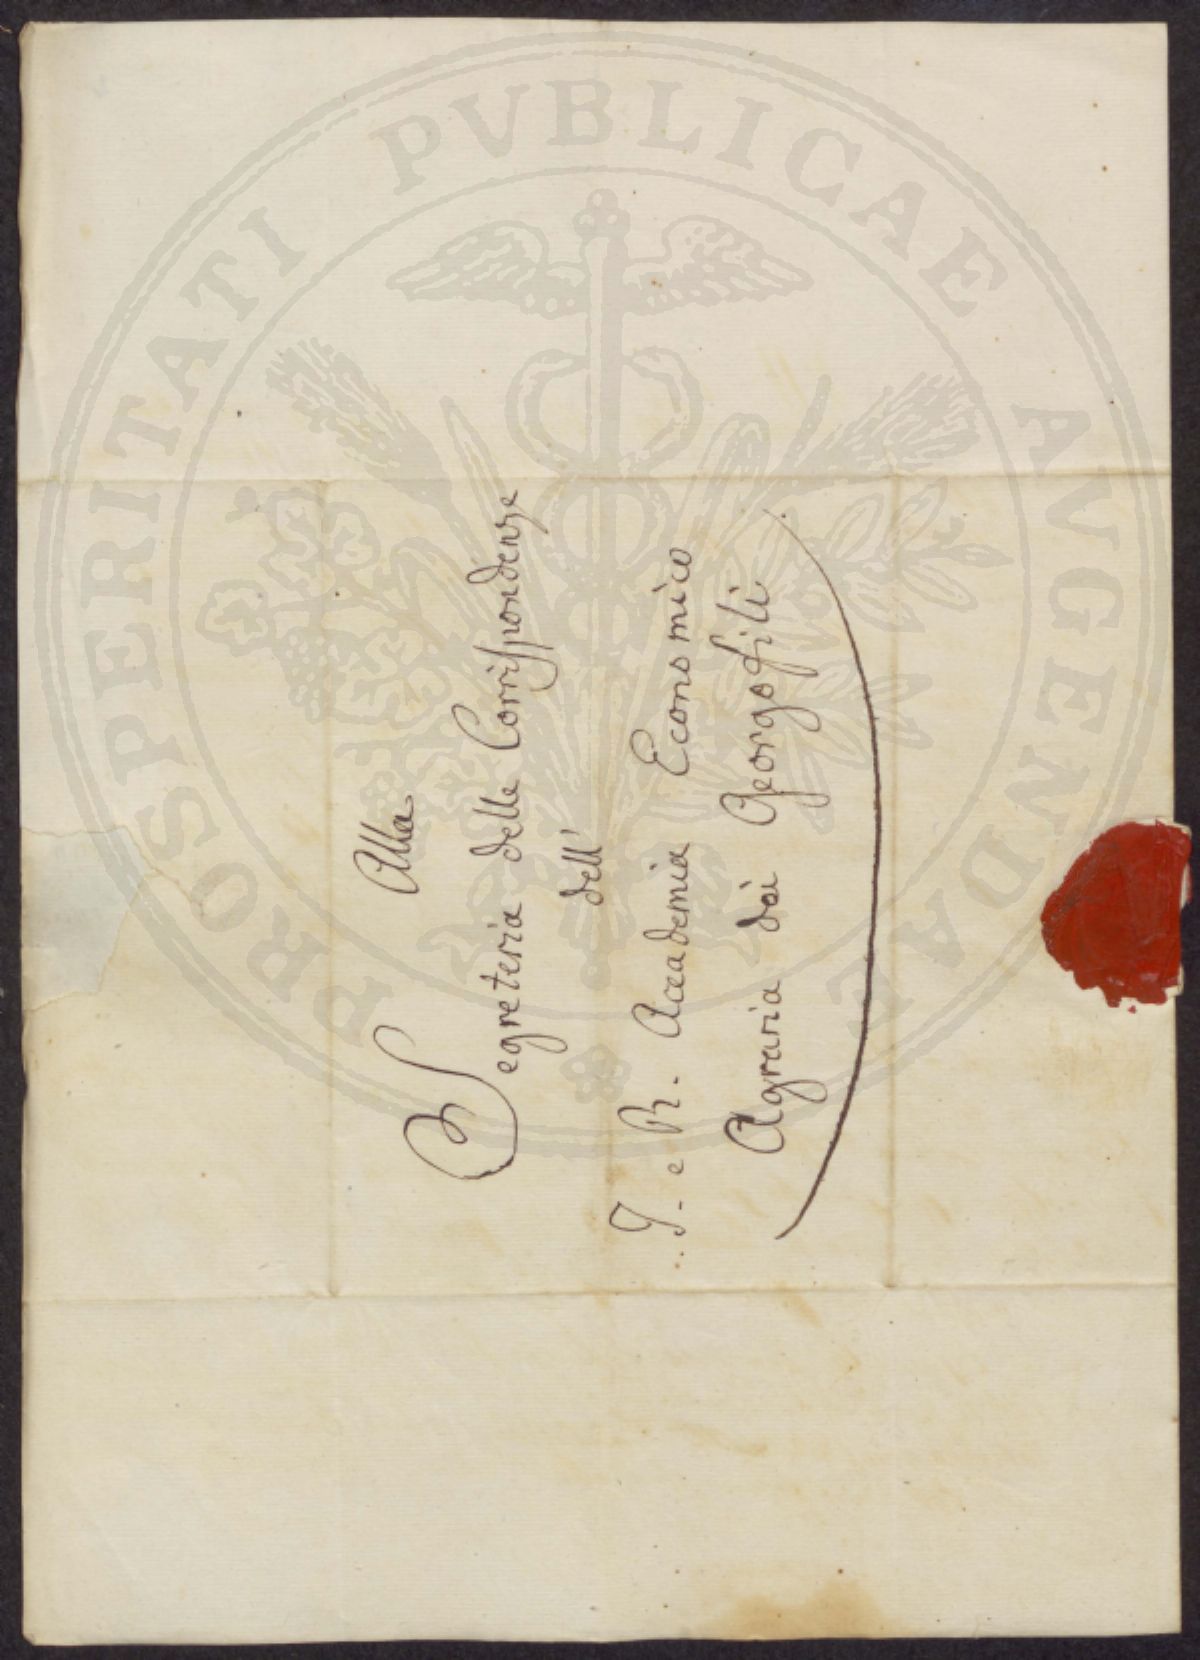 Alla
Segreteria delle Corrispondenze
dell'
I. e R. Accademia Economico
Agraria dei Georgofili
PROSPERITATI PVBLICAE AVGENDAE